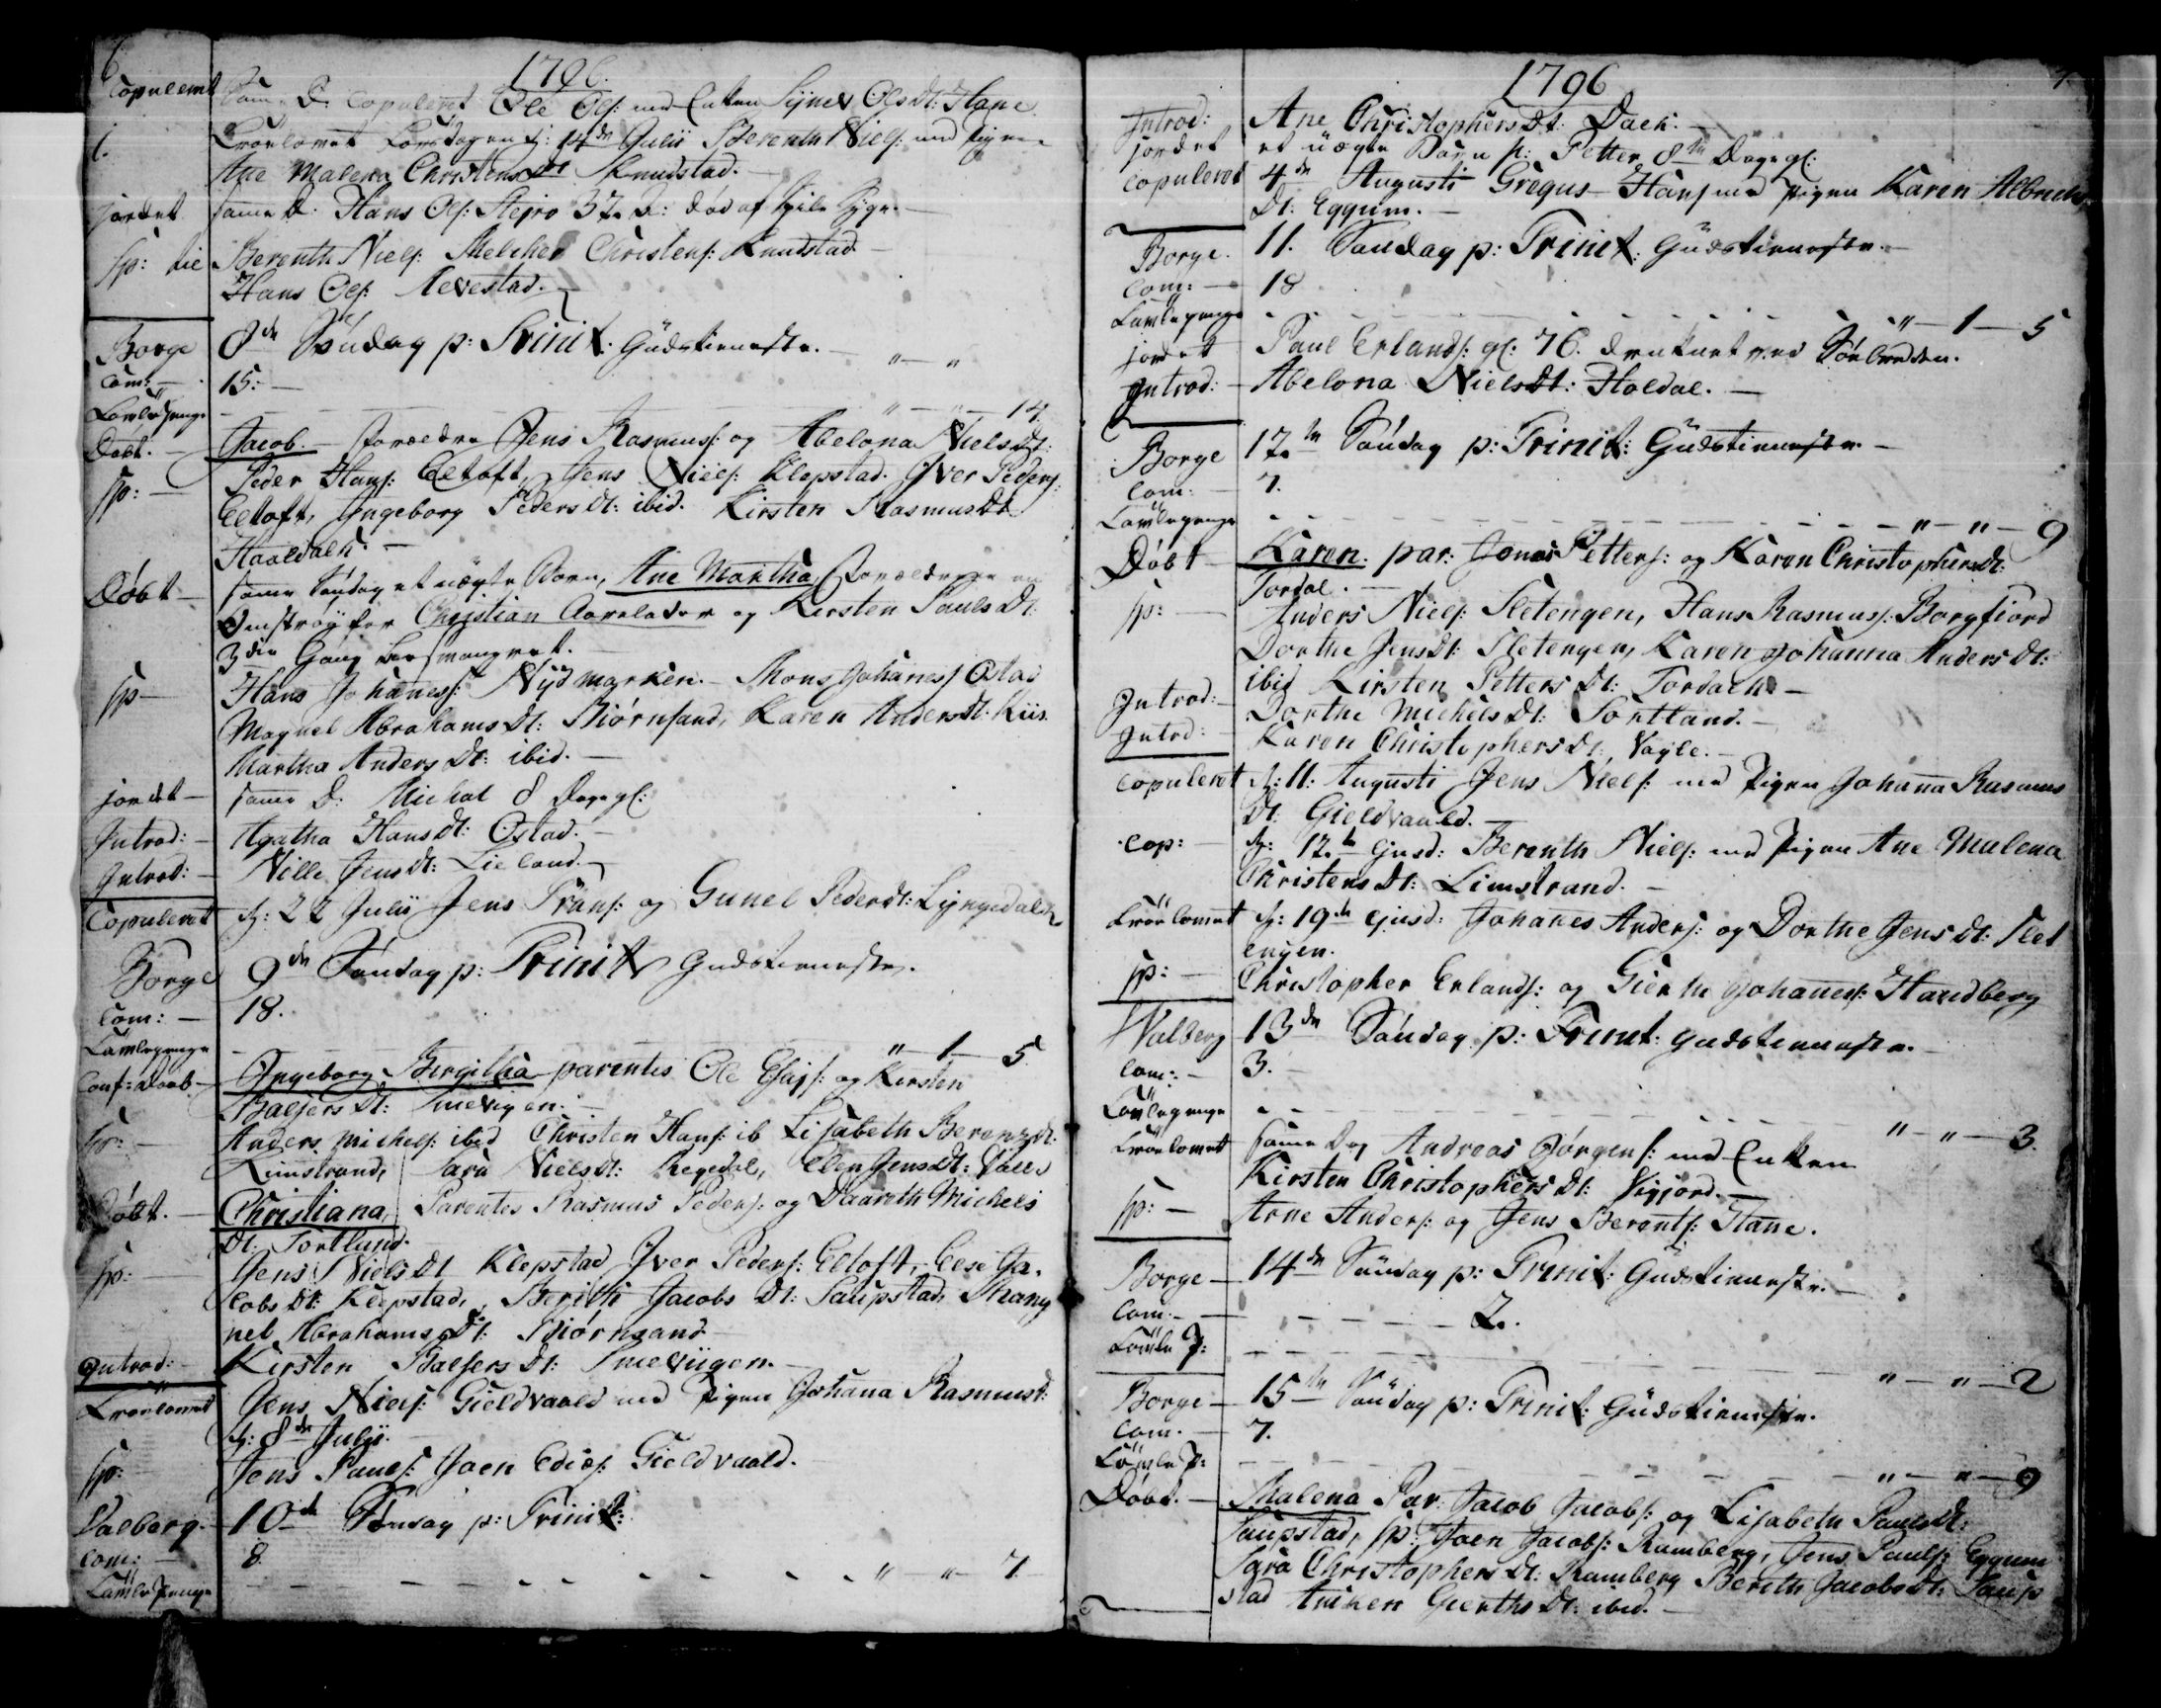 6.
1796.
Copuleret Sam. D. Copuleret Ole Ols: med Enken Signe Olsdt: Hane
Troelovet Torsdagen d: 14de Julii Berenth Niels: med Pigen
Ane Malena Christensdt Knudstad.
jordet samme D. Hans Ols: Stejro 37. død af
sp: Berenth Niels: Melcher Christens: Knudstad
Hans Ols: Aevestad.
Borge 8de Søndag p: Trinit: Gudstieneste.
Com: 15.
Tavlepenge " — " — 14
Døbt. Jacob. forældre Jens Rasmus: og Abelona Nielsdt:
sp: Peder Hans: Eltoft, Jens Niels: Klepstad. Iver Peders:
Eltoft, Ingeborg Pedersdt: ibid. Kirsten Rasmusdt
Haaldalh.
Døbt samme Søndag et uægte Barn, Ane Martha, forældrene en
Omstrøifer Christian og Kirsten Paulsdt
3die Gang besvangret.
sp Hans Johaness: Nÿdmarken. Mons Johaness Ostad
Magnel Abrahamsdt: Biørnsand, Karen Andersdt: Kiis.
Martha Andersdt: ibid.
jordet samme D: Michal 8 Dage gl:
Introd: Agatha Hansdt: Ostad.
Introd: Nille Jensdt: Lieland.
Copuleret d: 22 Julii Jens Frans: og Gunel Pedersdt: Lyngedalh
Borge 9de Søndag p: Trinit Gudstieneste.
Com: 18.
Tavlepenge " — 1 — 5
Conf: Daab. Ingeborg Birgitha parentes Ole Esais: og Kirsten
Balsersdt: Smevigen.
sp: Anders Michels: ibid Christen Hans: ib Lisabeth Berenzdt:
Limstrand, Sara Nielsdt: Regedal, Elen Jensdt: Valle
Døbt. Christiana, Parentes Rasmus Peders: og Daareth Michels
dt: Tortlund.
sp: Jens Nielsdt Klepstad Iver Peders: Eltoft, Else Ja-
cobsdt: Klepstad, Berith Jacobsdt: Saupstad, Mang
nel Abrahamsdt: Biørnsand
Introd: Kirsten Balsersdt: Smeviigen.
Troelovet Jens Niels: Gieldvaald med Pigen Johana Rasmusdt:
d: 8de Julii.
sp: Jens Pauls: Joen Edis: Gieldvaald.
Valberg. 10de Søndag p: Trinit:
Com: 8
Tavlepenge " " 7
7.
1796
Introd: Ane Christophersdt: Dach.
jordet et uægte Barn h: Petter 8te Dage gl:
copuleret 4de Augusti Gregus Hans: med Pigen Karen Albreths
dt: Eggum.
Borge. 11. Søndag p: Trinit: Gudstieneste.
Com: 18
Tavlepenge " — 1 — 5
jordet Paul Erlands: gl: 76. druknet ved Søebredden.
Introd: Abelona Nielsdt: Holdal.
Borge 12te Søndag p: Trinit: Gudstieneste.
Com: 7.
Tavlepenge " — " — 9
Døbt Karen. par: Jonas Petters: og Karen Christophersdt:
Tordal.
sp: Anders Niels: Sletengen, Hans Rasmus: Borgfiord
Dorthe Jensdt: Sletengen, Karen Johanna Andersdt:
ibid Kirsten Pettersdt: Tordalh
Introd: Dorthe Michelsdt: Tortland.
Introd: Karen Christophersdt: Vagle.
copuleret d: 11. Augusti Jens Niels: med Pigen Johana Rasmus
dt: Gieldvaald.
Cop: d: 12te Ejusd: Berenth Niels: med Pigen Ane Malena
Christensdt: Limstrand.
Troelovet d: 19de Ejusd: Johanes Anders: og Dorthe Jensdt: Slet
engen.
sp: Christopher Erlands: og Gierth Johaness: Haudberg
Valberg 13de Søndag p: Trinit: gudstieneste.
Com: 3.
Tavlepenge " — " — 3.
Troelovet samme Dag Andreas Jørgens: med Enken
Kirsten Christophersdt: Vigjord.
sp: Arne Anders: og Jens Berents: Hane.
Borge 14de Søndag p: Trinit: Gudstieneste.
Com. 2.
Tavle P: " — " — 2
Borge 15te Søndag p: Trinit: Gudstieneste.
Com. 7.
Tavle P: " — " — 9
Døbt. Malena Par: Jacob Jacobs: og Lisabeth Paulsdt:
Saupstad, sp: Joen Jacobs: Ramberg, Jens Pauls: Eggum
Sara Christophersdt: Ramberg Berith Jacobsdt: Saup
stad Anichen Gierthsdt: ibid.